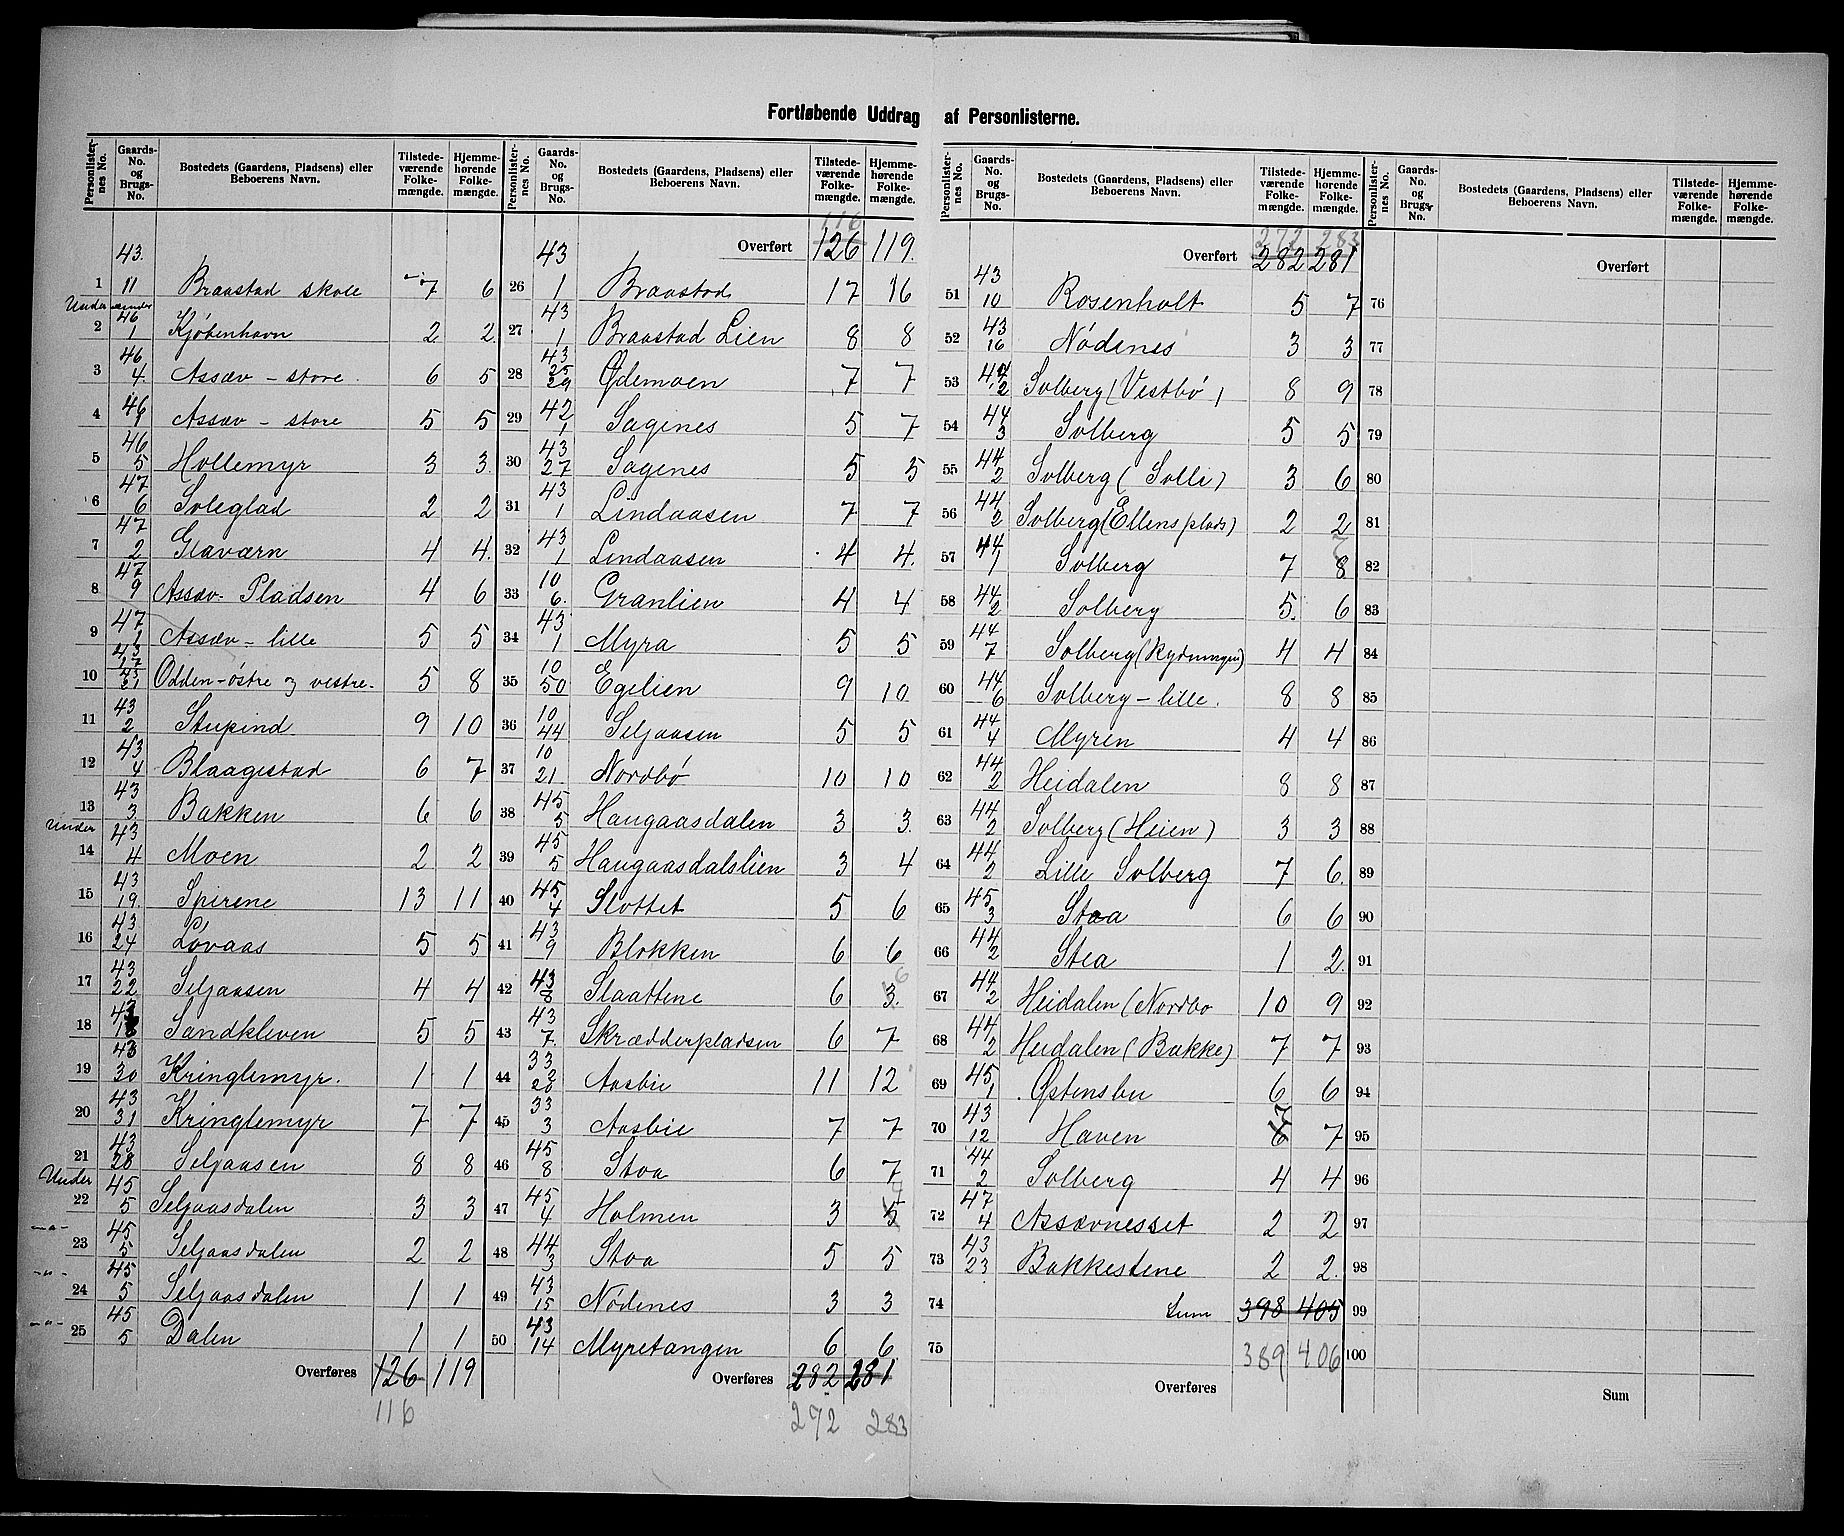 Fortløbende Uddrag af Personlisterne.
Personlister-nes No. Gaards-No. og Brugs-No. Bostedets (Gaardens, Pladsens) eller Beboerens Navn. Tilstede-værende Folke-mængde. Hjemme-hørende Folke-mængde.
43.
1 11 Braastad skole 7 6
Under
2 46 1 Kjøbenhavn 2 2
3 46 4. Assæv - store. 6 5
4 46 1 Assæv - store 5 5
5 46 5 Hollemyr 3 3.
6 47 6 Soleglad 2 2
7 47 2 Glaværn 4 4.
8 47 9 Assæv - Pladsen 4 6
9 47 1 Assæv - lille 5 5
10 43 17 43 21 Odden - østre og vestre. 5 8
11 43 2 Stupind 9 10
12 43 4 Blaagestad 6 7
13 43 3 Bakken 6 6
Under
14 43 4 Moen 2 2
15 43 19. Spirene 13 11
16 43 24 Lövaas 5 5
17 43 22 Seljaasen 4 4
18 43 18 Sandkleven 5 5
19 43 30 Kringlemyr. 1 1
20 43 31 Kringlemyr 7 7
21 43 28 Seljaasen 8 8
Under
22 45 5 Seljaasdalen 3 3
-"-
23 45 5 Seljaasdalen 2 2
-"-
24 45 5 Seljaasdalen 1 1
-"-
25 45 5 Dalen 1 1
Overføres 126 119
116
Personlister-nes No. Gaards-No. og Brugs-No. Bostedets (Gaardens, Pladsens) eller Beboerens Navn. Tilstede-værende Folke-mængde. Hjemme-hørende Folke-mængde.
116
Overført 126 119.
26 43 1 Braastad 17 16
27 43 1 Braastad Lien 8 8
28 43 25 29 Ødemoen 7 7
29 42 1 Sagenes 5 7
30 43 27 Sagenes 5 5
31 43 1 Lindaasen 7 7
32 43 1 Lindaasen 4 4.
33 10 6. Granlien 4 4
34 43 1 Myra 5 5
35 10 50 Egelien 9 10
36 10 44 Seljaasen 5 5
37 10 21. Nordbö 10 10
38 45 5 Haugaasdalen 3 3.
39 45 5 Haugaasdalslien 3 4
40 45 4 Slottet 5 6
41 43 9 Blokken 6 6
42 43 8 Slaattene 6 3. 6
43 43 7. Skrædderpladsen 6 7
44 33 2 20 Aasbie 11 12
45 33 3 Aasbie 7 7
46 45 8 Stoa 6 7
47 45 4 Holmen 3 5
48 44 3 Stoa 5 5
49 43 15 Nödenes 3 3
50 43 14 Myretangen 6 6
Overføres 282 281
272 283
Personlister-nes No. Gaards-No. og Brugs-No. Bostedets (Gaardens, Pladsens) eller Beboerens Navn. Tilstede-værende Folke-mængde. Hjemme-hørende Folke-mængde.
272 283
Overført 282 281
51 43 10 Rosenholt 5 7
52 43 16 Nödenes 3 3
53 44 2 Solberg (Vestbø) 8 9
54 44 3 Solberg 5 5
55 44 2 Solberg (Solli) 3 6
56 44 2 Solberg (Ellensplads) 2 2
57 44 1 Solberg 7 8 7
58 44 2 Solberg 5. 6
59 44 7 Solberg (Rydningen) 4 4
60 44 6 Solberg - lille. 8 8
61 44 4 Myren 4 4
62 44 2 Heidalen 8 8
63 44 2 Solberg (Heien) 3 3
64 44 2 Lille Solberg 7 6.
65 45 3 Staa 6 6
66 44 2 Stea 1 2.
67 44 2 Heidalen (Nordbo 10 9
68 44 2 Heidalen (Bakke) 7 7
69 45 1 Østensbu 6 6
70 43 12 Haven 6 7 7
71 44 2 Solberg 4 4
72 47 4 Assævnesset 2 2
73 43 23 Bakkestene 2 2.
74 Sum 398 405
75 389 406
Overføres
Personlister-nes No. Gaards-No. og Brugs-No. Bostedets (Gaardens, Pladsens) eller Beboerens Navn. Tilstede-værende Folke-mængde. Hjemme-hørende Folke-mængde.
Overført
76
77
78
79
80
81
82
83
84
85
86
87
88
89
90
91
92
93
94
95
96
97
98
99
100
Sum